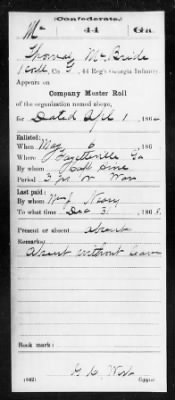 (Confederate.)
Mc 44 Ga.
Thomas McBride
Co. , 44 Reg't Georgia Infantry.
Appears on
Company Muster Roll
of the organization named above,
for Dated Apl 1, 186
Enlisted:
When May 6, 186
Where Fayetteville Ga
By whom Capt
Period 3 yrs or War
Last paid:
By whom
To what time Dec 31, 186
Present or absent Absent
Remarks:
Absent without leave
Book mark:
(642) Copyist.